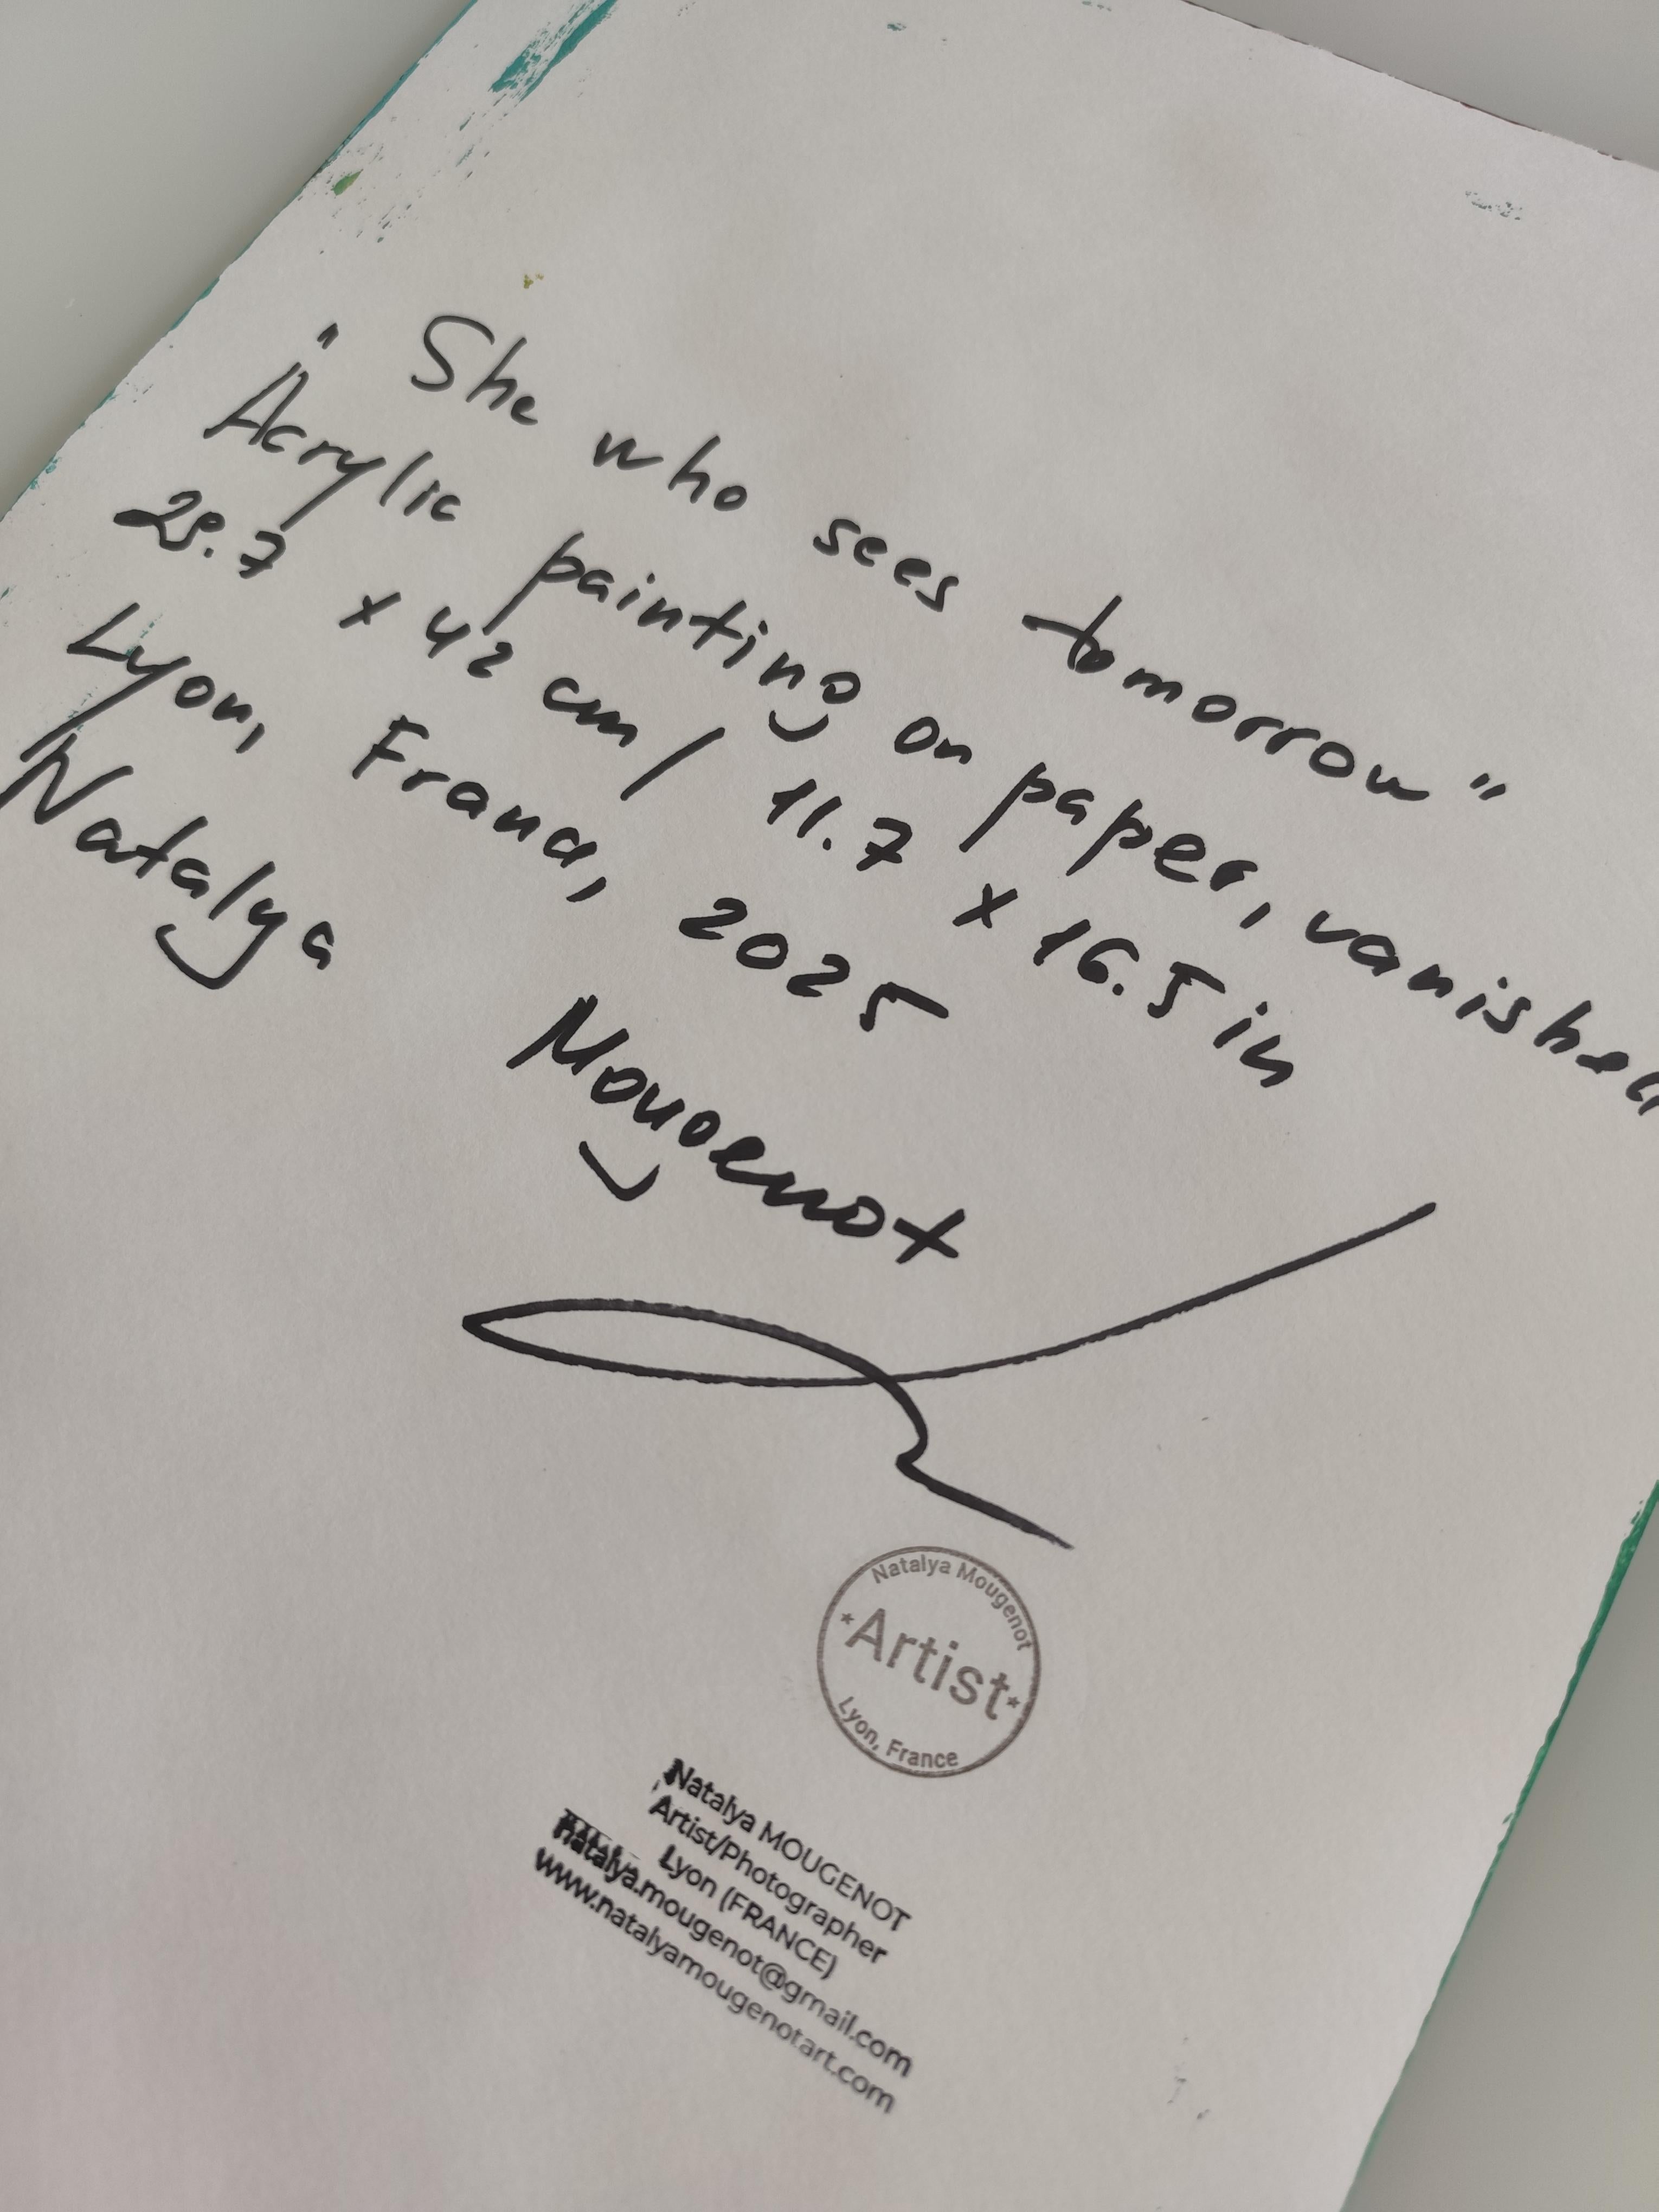 "She who sees tomorrow"
Acrylic painting on paper, vanished
29.7 x 42 cm / 11.7 x 16.5 in
Lyon, France, 2025
Natalya Mougenot
Natalya Mougenot
*Artist*
Lyon, France
Natalya MOUGENOT
Artist/Photographer
Lyon (FRANCE)
natalya.mougenot@gmail.com
www.natalyamougenotart.com